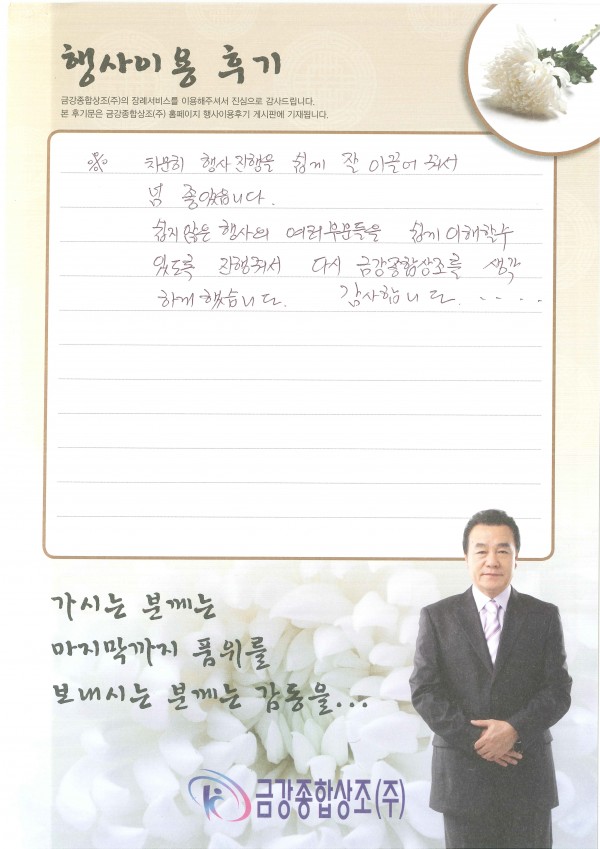 행사이용 후기
금강종합상조(주)의 장례서비스를 이용해주셔서 진심으로 감사드립니다.
본 후기문은 금강종합상조(주) 홈페이지 행사이용후기 게시판에 기재됩니다.
※ 차분히 행사진행을 쉽게 잘 이끌어 줘서
넘 좋았습니다.
쉽지않은 행사의 여러부분들을 쉽게이해할수
있도록 진행줘서 다시 금강종합상조를 생각
하게했습니다. 감사합니다.....
가시는 분께는
마지막까지 품위를
보내시는 분께는 감동을...
금강종합상조(주)